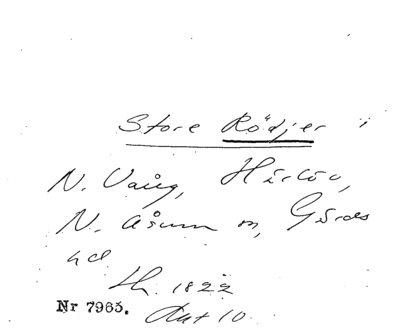 Store Rödjer i
N. Vång, Härlöv,
N. Åsum m, Gärds
hd
Lh. 1822
Nr 7965. Akt 10